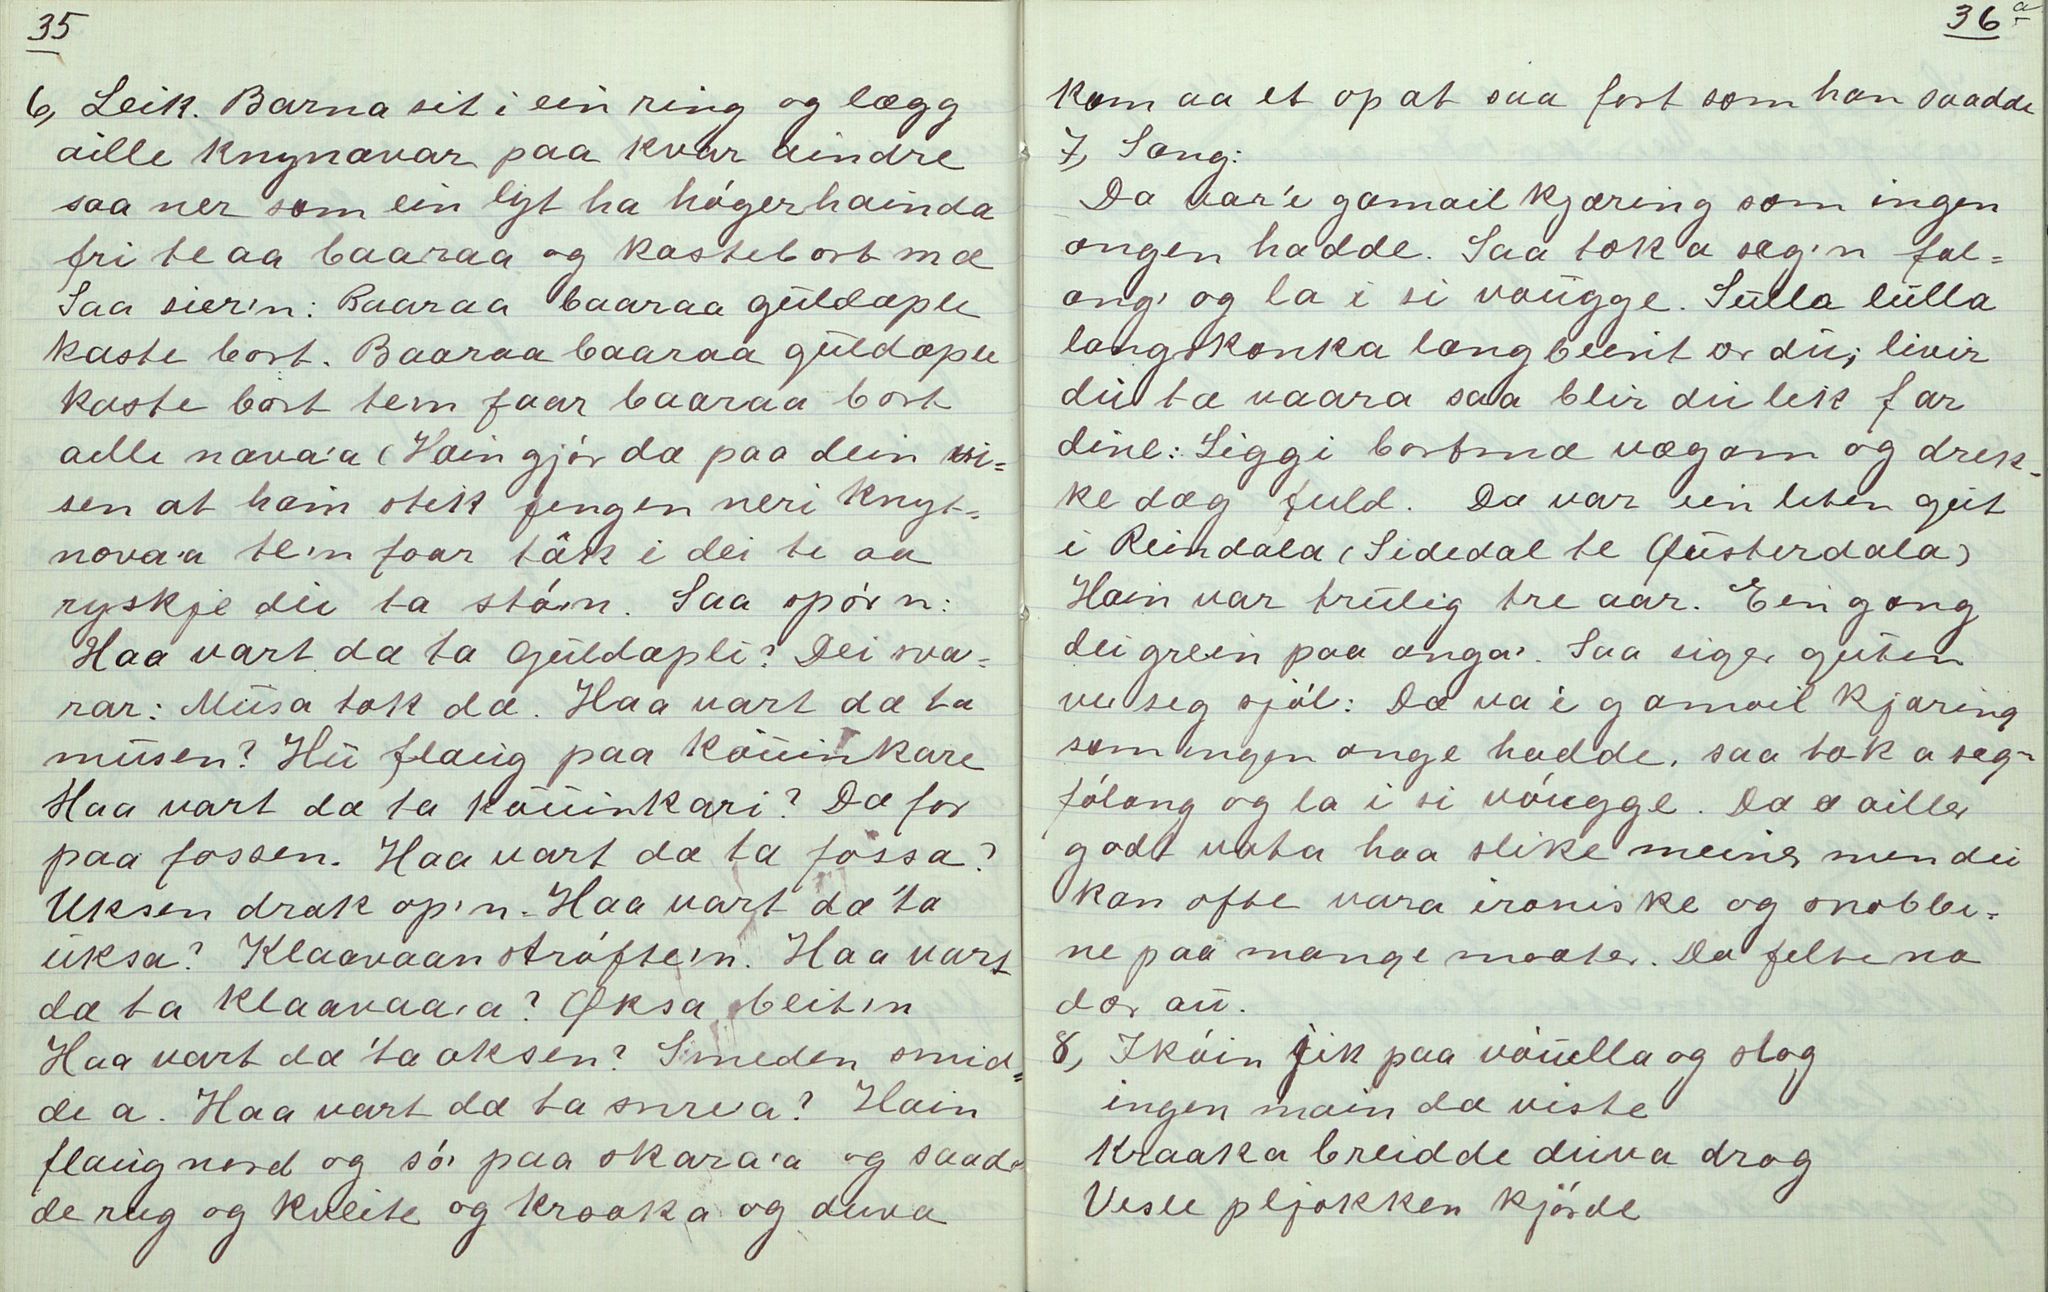 35
6, Leik. Barna sit i ein ring og lægg
aille knynævar paa kvar aindre
saa ner som ein lyt ha högerhainda
fri te aa baaraa og kaste bort mæ
Saa sier'n: Baaraa baaraa güldæple
kaste bort. Baaraa baaraa güldæple
kaste bort tem faar baaraa bort
aille næva'a (Hain gjör dæ paa dein vi=
sen at hain stek fengen neri knyt=
nova'a te'n faar tâk i dei te aa
ryskje dei ta stó'n. Saa spör n:
Haa vart dæ ta güldæpli? Dei sva=
rar: Müsa tok dæ. Haa vart dæ ta
müsen? Hü flaüg paa köüinkare
Haa vart dæ ta köüinkari? Dæ for
paa fossen. Haa vart dæ ta fossa?
Uksen drak op'n. Haa vart dæ 'ta
üksa? Klaavaan stráfte'n. Haa vart
dæ ta klaavaa'a? Øksa beit'n
Haa vart dæ 'ta øksen? Smeden smid=
de a. Haa vart dæ ta smea? Hain
flaüg nord og sö' paa skara'a og saad=
de rug og kveite og kraaka og duva
36 a
kom aa et op at saa fort som han saadde
7, Song:
Da var'e gamail kjæring som ingen
ongen hadde. Saa tok a seg'n fol=
ong' og la i si voügge. Sülla lülla
langskonka langbeint ær dü; livir
dü ta vaara saa blir dü lik far
dine: Liggi bortmæ vægom og drek=
ke dæg fuld. Da var ein liten güt
i Reindala (Sidedal te Øüsterdala)
Hain var trülig tre aar. Ein gong
dei grein paa onga'. Saa siger güten
ve seg sjöl: Dæ va'e gamail kjæring
som ingen onge hadde, saa tok a seg'n
fólong og la i si vóugge. Dæ æ ailler
godt veta haa slike meiner men dei
kan ofte vara ironiske og snobbe=
ne paa mange maater. Da felte na
dær aü.
8, Ikóin jik paa vóüella og slog
ingen main dæ viste
Kraaka breidde düva drog
Vesle pljokken kjörde